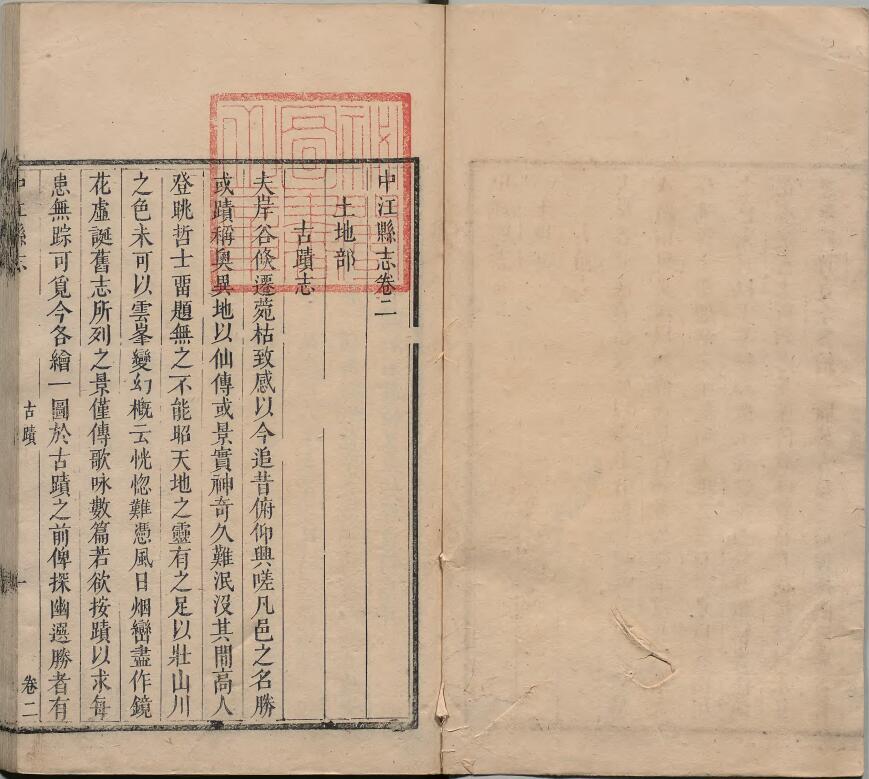 中江縣志卷二
土地部
古蹟志
夫岸谷倐遷菀枯致感以今追昔俯仰興嗟凡邑之名勝
或蹟稱奧異地以仙傳或景實神奇久難泯沒其閒高人
登眺哲士畱題無之不能昭天地之靈有之足以壯山川
之色未可以雲峯變幻槪云恍惚難憑風日烟巒盡作鏡
花虛誕舊志所列之景僅傳歌咏數篇若欲按蹟以求每
患無踪可覓今各繪一圖於古蹟之前俾探幽選勝者有
中江縣志
古蹟
一
卷二